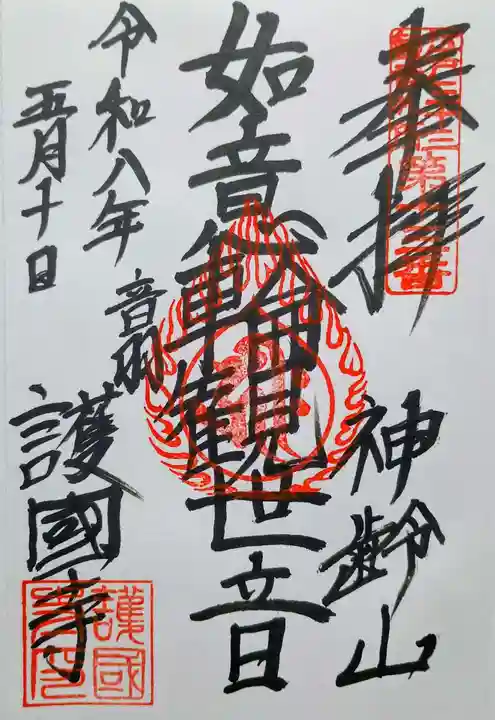 奉拝
神齢山
如意輪観世音
音羽
護國寺
令和八年
五月十日
護國